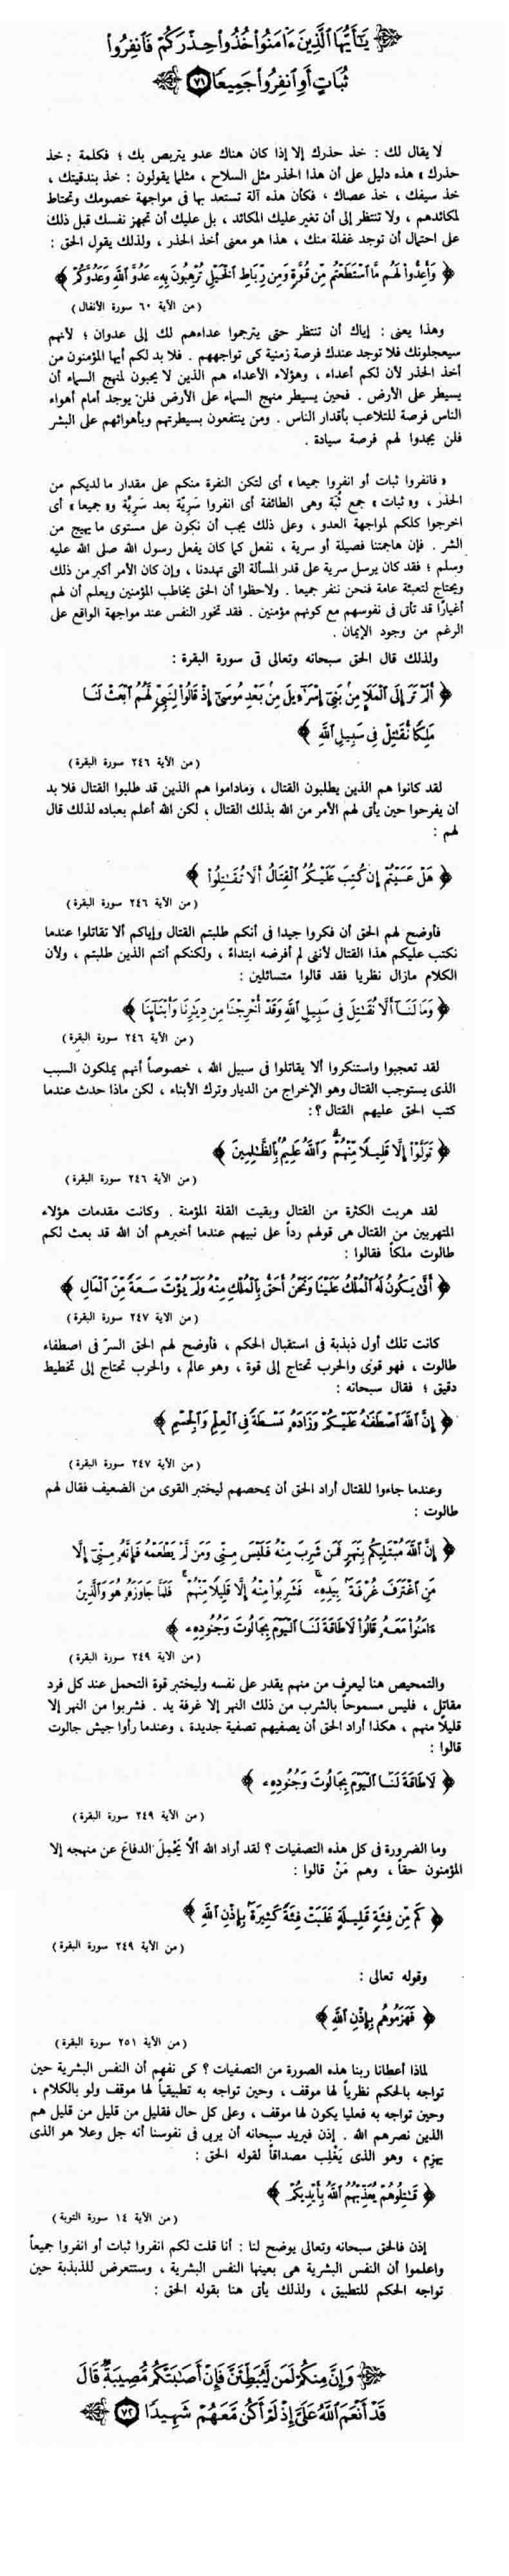 يَٰٓأَيُّهَا ٱلَّذِينَ ءَامَنُوا۟ خُذُوا۟ حِذْرَكُمْ فَٱنفِرُوا۟
ثُبَاتٍ أَوِ ٱنفِرُوا۟ جَمِيعًا ٧١
لا يقال لك : خذ حذرك إلا إذا كان هناك عدو يتربص بك ؛ فكلمة : خذ
حذرك » هذه دليل على أن هذا الحذر مثل السلاح ، مثلما يقولون : خذ بندقيتك ،
خذ سيفك ، خذ عصاك ، فكأن هذه آلة تستعد بها فى مواجهة خصومك وتحتاط
لمكائدهم ، ولا تنتظر إلى أن تغير عليك المكائد ، بل عليك أن تجهز نفسك قبل ذلك
على احتمال أن توجد غفلة منك ، هذا هو معنى أخذ الحذر ، ولذلك يقول الحق :
﴿ وَأَعِدُّوا۟ لَهُم مَّا ٱسْتَطَعْتُم مِّن قُوَّةٍ وَمِن رِّبَاطِ ٱلْخَيْلِ تُرْهِبُونَ بِهِۦ عَدُوَّ ٱللَّهِ وَعَدُوَّكُمْ ﴾
( من الآية ٦٠ سورة الأنفال )
وهذا يعنى : إياك أن تنتظر حتى يترجموا عداءهم لك إلى عدوان ؛ لأنهم
سيعجلونك فلا توجد عندك فرصة زمنية كى تواجههم . فلا بد لكم أيها المؤمنون من
أخذ الحذر لأن لكم أعداء ، وهؤلاء الأعداء هم الذين لا يحبون لمنهج السماء أن
يسيطر على الأرض . فحين يسيطر منهج السماء على الأرض فلن يوجد أمام أهواء
الناس فرصة للتلاعب بأقدار الناس . ومن ينتفعون بسيطرتهم وبأهوائهم على البشر
فلن يجدوا لهم فرصة سيادة .
« فانفروا ثبات أو انفروا جميعا » أى لتكن النفرة منكم على مقدار ما لديكم من
الحذر ، و« ثبات » جمع ثُبَة وهى الطائفة أى انفروا سَرِيّة بعد سَرِيَّة و« جميعا » أى
اخرجوا كلكم لمواجهة العدو ، وعلى ذلك يجب أن نكون على مستوى ما يهيج من
الشر . فإن هاجمتنا فصيلة أو سرية ، نفعل كما كان يفعل رسول الله صلى الله عليه
وسلم ؛ فقد كان يرسل سرية على قدر المسألة التى تهددنا ، وإن كان الأمر أكبر من ذلك
ويحتاج لتعبئة عامة فنحن ننفر جميعا . ولاحظوا أن الحق يخاطب المؤمنين ويعلم أن لهم
أغيارًا قد تأتى فى نفوسهم مع كونهم مؤمنين . فقد تخور النفس عند مواجهة الواقع على
الرغم من وجود الإيمان .
ولذلك قال الحق سبحانه وتعالى فى سورة البقرة :
﴿ أَلَمْ تَرَ إِلَى ٱلْمَلَإِ مِنۢ بَنِىٓ إِسْرَٰٓءِيلَ مِنۢ بَعْدِ مُوسَىٰٓ إِذْ قَالُوا۟ لِنَبِىٍّ لَّهُمُ ٱبْعَثْ لَنَا
مَلِكًا نُّقَٰتِلْ فِى سَبِيلِ ٱللَّهِ ﴾
( من الآية ٢٤٦ سورة البقرة )
لقد كانوا هم الذين يطلبون القتال ، وماداموا هم الذين قد طلبوا القتال فلا بد
أن يفرحوا حين يأتى لهم الأمر من الله بذلك القتال ، لكن الله أعلم بعباده لذلك قال
لهم :
﴿ هَلْ عَسَيْتُمْ إِن كُتِبَ عَلَيْكُمُ ٱلْقِتَالُ أَلَّا تُقَٰتِلُوا۟ ﴾
( من الآية ٢٤٦ سورة البقرة )
فأوضح لهم الحق أن فكروا جيدا فى أنكم طلبتم القتال وإياكم ألا تقاتلوا عندما
نكتب عليكم هذا القتال لأننى لم أفرضه ابتداءً ، ولكنكم أنتم الذين طلبتم ، ولأن
الكلام مازال نظريا فقد قالوا متسائلين :
﴿ وَمَا لَنَآ أَلَّا نُقَٰتِلَ فِى سَبِيلِ ٱللَّهِ وَقَدْ أُخْرِجْنَا مِن دِيَٰرِنَا وَأَبْنَآئِنَا ﴾
( من الآية ٢٤٦ سورة البقرة )
لقد تعجبوا واستنكروا ألا يقاتلوا فى سبيل الله ، خصوصاً أنهم يملكون السبب
الذى يستوجب القتال وهو الإخراج من الديار وترك الأبناء ، لكن ماذا حدث عندما
كتب الحق عليهم القتال ؟:
﴿ تَوَلَّوْا۟ إِلَّا قَلِيلًا مِّنْهُمْ ۗ وَٱللَّهُ عَلِيمٌۢ بِٱلظَّٰلِمِينَ ﴾
( من الآية ٢٤٦ سورة البقرة )
لقد هربت الكثرة من القتال وبقيت القلة المؤمنة . وكانت مقدمات هؤلاء
المتهربين من القتال هى قولهم رداً على نبيهم عندما أخبرهم أن الله قد بعث لكم
طالوت ملكاً فقالوا :
﴿ أَنَّىٰ يَكُونُ لَهُ ٱلْمُلْكُ عَلَيْنَا وَنَحْنُ أَحَقُّ بِٱلْمُلْكِ مِنْهُ وَلَمْ يُؤْتَ سَعَةً مِّنَ ٱلْمَالِ ﴾
( من الآية ٢٤٧ سورة البقرة )
كانت تلك أول ذبذبة فى استقبال الحكم ، فأوضح لهم الحق السرّ فى اصطفاء
طالوت ، فهو قوى والحرب تحتاج إلى قوة ، وهو عالم ، والحرب تحتاج إلى تخطيط
دقيق ؛ فقال سبحانه :
﴿ إِنَّ ٱللَّهَ ٱصْطَفَىٰهُ عَلَيْكُمْ وَزَادَهُۥ بَسْطَةً فِى ٱلْعِلْمِ وَٱلْجِسْمِ ﴾
( من الآية ٢٤٧ سورة البقرة )
وعندما جاءوا للقتال أراد الحق أن يمحصهم ليختبر القوى من الضعيف فقال لهم
طالوت :
﴿ إِنَّ ٱللَّهَ مُبْتَلِيكُم بِنَهَرٍ فَمَن شَرِبَ مِنْهُ فَلَيْسَ مِنِّى وَمَن لَّمْ يَطْعَمْهُ فَإِنَّهُۥ مِنِّىٓ إِلَّا
مَنِ ٱغْتَرَفَ غُرْفَةًۢ بِيَدِهِۦ ۚ فَشَرِبُوا۟ مِنْهُ إِلَّا قَلِيلًا مِّنْهُمْ ۚ فَلَمَّا جَاوَزَهُۥ هُوَ وَٱلَّذِينَ
ءَامَنُوا۟ مَعَهُۥ قَالُوا۟ لَا طَاقَةَ لَنَا ٱلْيَوْمَ بِجَالُوتَ وَجُنُودِهِۦ ﴾
( من الآية ٢٤٩ سورة البقرة )
والتمحيص هنا ليعرف من منهم يقدر على نفسه وليختبر قوة التحمل عند كل فرد
مقاتل ، فليس مسموحاً بالشرب من ذلك النهر إلا غرفة يد . فشربوا من النهر إلا
قليلًا منهم ، هكذا أراد الحق أن يصفيهم تصفية جديدة ، وعندما رأوا جيش جالوت
قالوا :
﴿ لَا طَاقَةَ لَنَا ٱلْيَوْمَ بِجَالُوتَ وَجُنُودِهِۦ ﴾
( من الآية ٢٤٩ سورة البقرة )
وما الضرورة فى كل هذه التصفيات ؟ لقد أراد الله ألاَّ يَحْمِلَ الدفاعَ عن منهجه إلا
المؤمنون حقاً ، وهم مَنْ قالوا :
﴿ كَم مِّن فِئَةٍ قَلِيلَةٍ غَلَبَتْ فِئَةً كَثِيرَةًۢ بِإِذْنِ ٱللَّهِ ﴾
( من الآية ٢٤٩ سورة البقرة )
وقوله تعالى :
﴿ فَهَزَمُوهُم بِإِذْنِ ٱللَّهِ ﴾
( من الآية ٢٥١ سورة البقرة )
لماذا أعطانا ربنا هذه الصورة من التصفيات ؟ كى نفهم أن النفس البشرية حين
تواجه بالحكم نظرياً لها موقف ، وحين تواجه به تطبيقياً لها موقف ولو بالكلام ،
وحين تواجه به فعليا يكون لها موقف ، وعلى كل حال فقليل من قليل من قليل هم
الذين نصرهم الله . إذن فيريد سبحانه أن يربى فى نفوسنا أنه جل وعلا هو الذى
يهزم ، وهو الذى يَغْلِب مصداقاً لقوله الحق :
﴿ قَٰتِلُوهُمْ يُعَذِّبْهُمُ ٱللَّهُ بِأَيْدِيكُمْ ﴾
( من الآية ١٤ سورة التوبة )
إذن فالحق سبحانه وتعالى يوضح لنا : أنا قلت لكم انفروا ثبات أو انفروا جميعاً
واعلموا أن النفس البشرية هى بعينها النفس البشرية ، وستتعرض للذبذبة حين
تواجه الحكم للتطبيق ، ولذلك يأتى هنا بقوله الحق :
وَإِنَّ مِنكُمْ لَمَن لَّيُبَطِّئَنَّ فَإِنْ أَصَٰبَتْكُم مُّصِيبَةٌ قَالَ
قَدْ أَنْعَمَ ٱللَّهُ عَلَىَّ إِذْ لَمْ أَكُن مَّعَهُمْ شَهِيدًا ٧٢